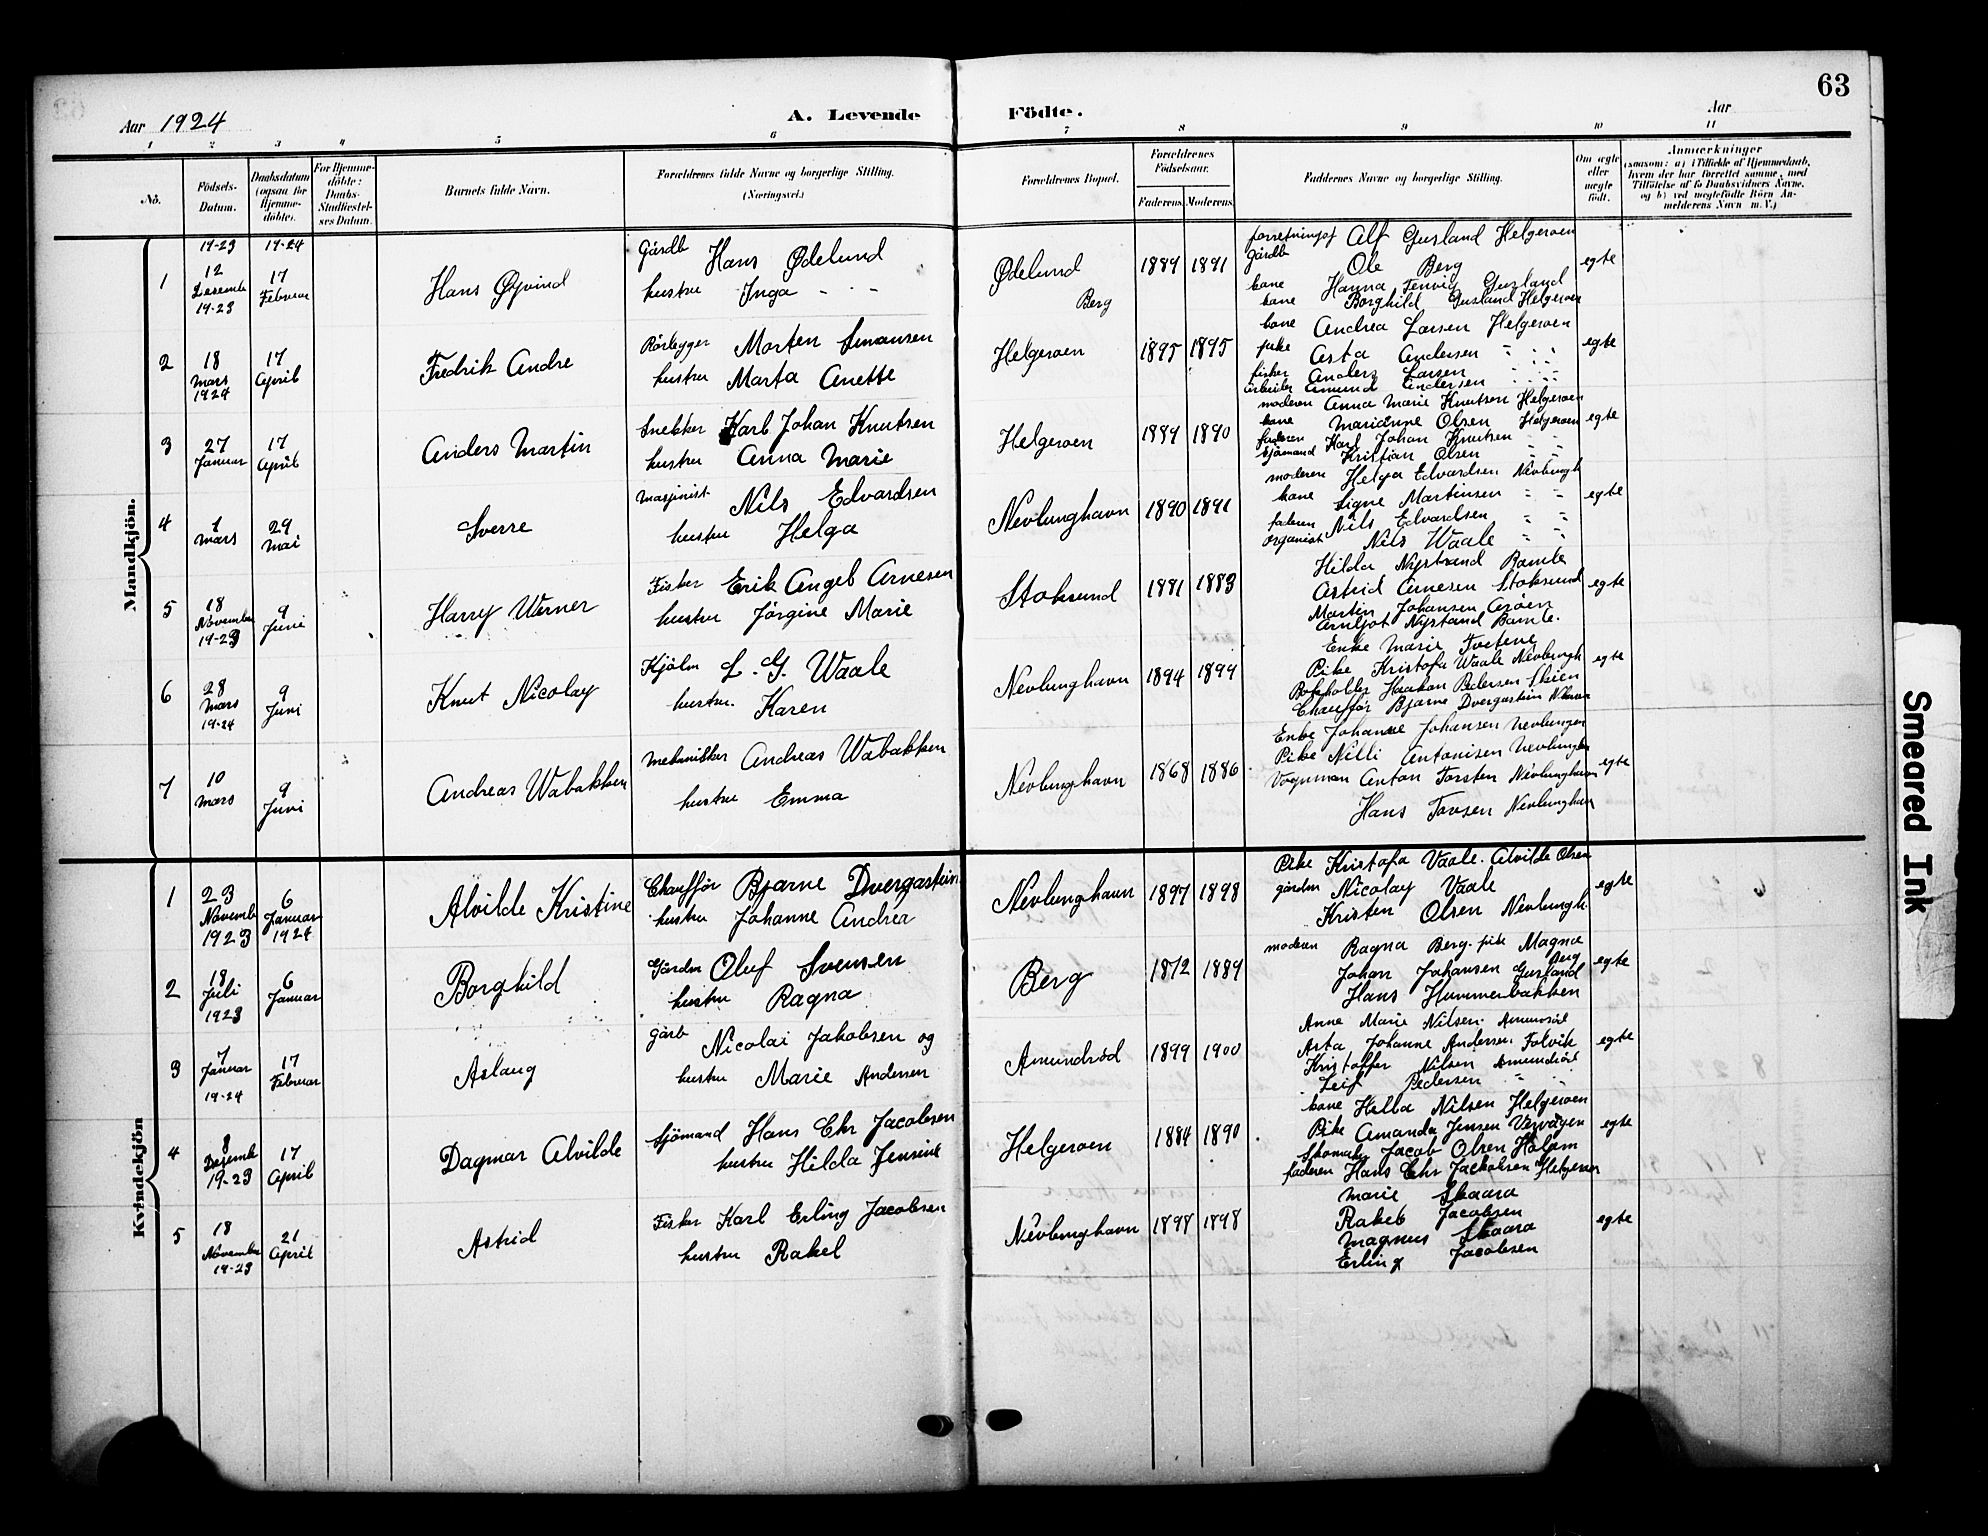 63
Aar 1924
A. Levende Födte.
Aar
1 2 3 4 5 6 7 8 9 10 11
No.
Födsels-Datum.
Daabsdatum (ogsaa for Hjemme-döbte).
For Hjemme-döbte: Daabs-Stadfæstel-ses Datum.
Barnets fulde Navn.
Forældrenes fulde Navne og borgerlige Stilling. (Næringsvei.)
Forældrenes Bopæl.
Forældrenes Födselsaar.
Faderens Moderens
Faddernes Navne og borgerlige Stilling.
Om ægte eller uægte födt.
Anmærkninger
(saasom: a) i Tilfælde af Hjemmedaab,
hvem der har forrettet samme, med
Tilföielse af to Daabsvidners Navne,
og b) ved uægtefödte Börn An-
melderens Navn m. V.)
Mandkjön.
1
19-23 12 Desemb 19-23
19-24 17 Februar
Hans Øyvind
Gårdb Hans Ødelund
hustru Inga - - -
Ødelund
Berg
1889 1891
Alf Gusland Helgeroen
Gårdb Ole Berg
kone Hanna Gusland
kone Borghild Gusland Helgeroen
egte
2
18 Mars 1924
17 April
Fredrik Andre
Rörlegger Morten Simonsen
hustru Marta Anette
Helgeroen
1895 1895
kone Andrea Larsen Helgeroen
pike Asta Andersen
fisker Anders Larsen
Arbeider Amund Andersen
egte
3
27 Januar
17 April
Anders Martin
Snekker Karl Johan Knutsen
hustru Anna Marie
Helgeroen
1889 1890
moderen Anna Marie Knutsen Helgeroen
kone Marianne Olsen Helgeroen
faderen Karl Johan Knutsen
Sjömand Kristian Olsen
egte
4
1 Mars
29 Mai
Sverre
Masjinist Nils Edvardsen
hustru Helga
Nevlunghavn
1890 1891
moderen Helga Edvardsen Nevlungh
kone Signe Martinsen
faderen Nils Edvardsen
Organist Nils Waale
egte
5
18 November 19-23
9 Juni
Harry Werner
Fisker Erik Angel Arnesen
hustru Jörgine Marie
Stoksund
1881 1883
Hilda Nystrand Bamle
Astrid Arnesen Stoksund
Martin Johansen Arøen
Arnljot Nystand Bamle.
egte
6
28 Mars 19-24
9 Juni
Knut Nicolay
L. G. Waale
hustru. Karen
Nevlunghavn
1894 1899
Enke Marie Tvetene
Pike Kristofa Waale Nevlungh
Bokholder Haakon Pedersen Skien
Chaufför Bjarne Dvergastein
egte
7
10 Mars
9 Juni
Andreas Wabakken
mekaniker Andreas Wabakken
hustru Emma
Nevlunghavn
1868 1886
Enke Johanne Johansen
Pike Nilli Antonisen
Vognman Anton Torsten Nevlunghavn
Hans Tovsen Nevlunghavn
egte
Kvindekjön
1
23 Novemb 1923
6 Januar 1924
Alvilde Kristine
Chaufför Bjarne Dvergastein
hustru Johanne Andrea
Nevlunghavn
1897 1898
Pike Kristofa Vaale. Alvilde Olsen
Nicolay Vaale
Kristen Olsen Nevlungh
egte
2
18 Juli 1923
6 Januar
Borghild
Oluf Svensen
hustru Ragna
Berg
1872 1889
moderen Ragna Berg. pike Magna Berg
Johan Johansen Gusland
Hans Hummerbakken
egte
3
7 Januar 19-24
17 Februar
Aslaug
Gårb Nicolai Jakobsen og
hustru Marie Andersen
Amundröd
1899 1900
Anne Marie Nilsen. Amundröd
Asta Johanne Andersen. Folvik
Kristoffer Nilsen Amundröd
Leif Pedersen
egte
4
8 Desemb 19-23
17 April
Dagmar Alvilde
Sjömand Hans Chr Jacobsen
hustru Hilda Jensine
Helgeroen
1884 1890
kone Helba Nilsen Helgeroen
Pike Amanda Jensen
Skomak Jacob Olsen
faderen Hans Chr Jackobsen Helgeroen
egte
5
18 November 19-23
21 April
Astrid
Fisker Karl Erling Jacobsen
hustru Rakel
Nevlunghavn
1898 1898
Marie Skaara
Rakel Jacobsen
Magnus Skaara
Erling Jacobsen
egte
Smeared Ink